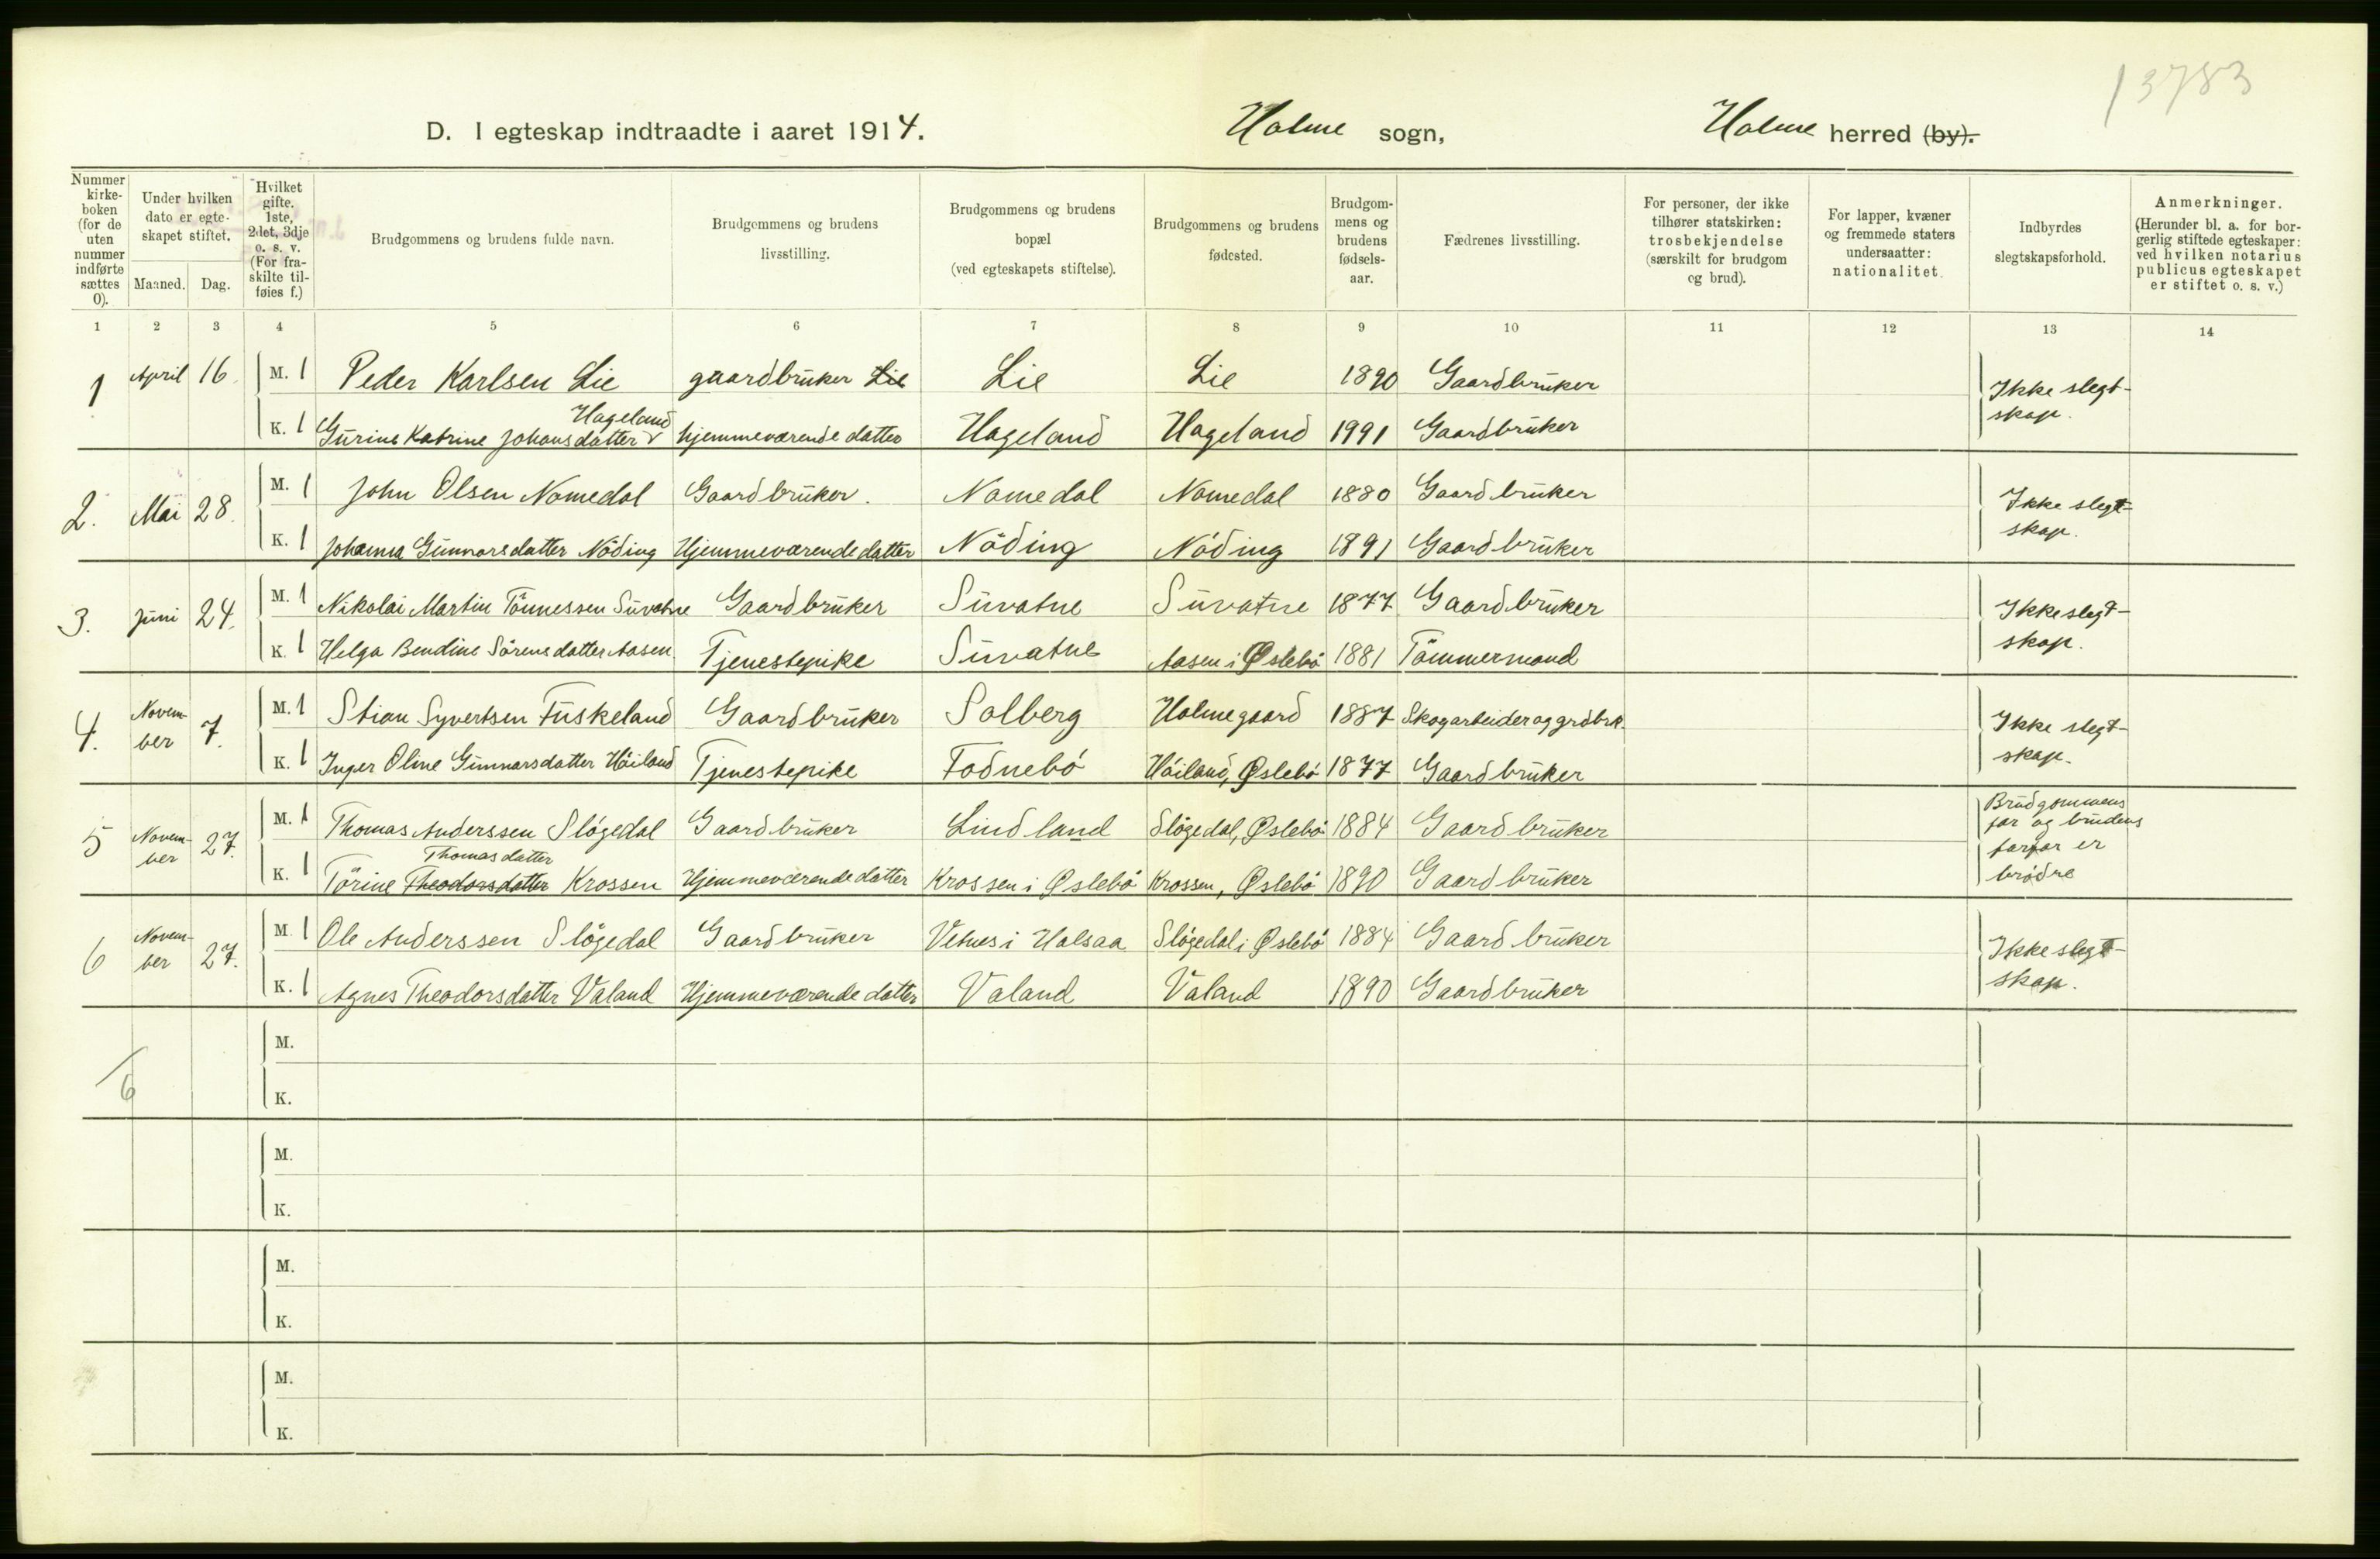 13783
D. I egteskap indtraadte i aaret 1914. Holme sogn, Holme herred (by).
Nummer kirke-boken (for de uten nummer indførte sættes 0). | Under hvilken dato er egte-skapet stiftet. Maaned. Dag. | Hvilket gifte. 1ste, 2det, 3dje o. s. v. (For fra-skilte til-føies f.) | Brudgommens og brudens fulde navn. | Brudgommens og brudens livsstilling. | Brudgommens og brudens bopæl (ved egteskapets stiftelse). | Brudgommens og brudens fødested. | Brudgom-mens og brudens fødsels-aar. | Fædrenes livsstilling. | For personer, der ikke tilhører statskirken: trosbekjendelse (særskilt for brudgom og brud). | For lapper, kvæner og fremmede staters undersaatter: nationalitet. | Indbyrdes slegtskapsforhold. | Anmerkninger. (Herunder bl. a. for bor-gerlig stiftede egteskaper: ved hvilken notarius publicus egteskapet er stiftet o. s. v.)
1 2 3 4 5 6 7 8 9 10 11 12 13 14
1 April 16. M. 1 Peder Karlsen Lie gaardbruker Lie Lie Lie 1890 Gaardbruker Ikke slegt-
K. 1 Gurine Katrine Johansdatter Hageland hjemmeværende datter Hageland Hageland 1991 Gaardbruker skap.
2. Mai 28. M. 1 John Olsen Nomedal Gaardbruker. Nomedal Nomedal 1880 Gaardbruker Ikke slegt-
K. 1 Johanna Gunnarsdatter Nöding Hjemmeværende datter Nöding Nöding 1891 Gaardbruker skap.
3. Juni 24. M. 1 Nikolai Martin Tönnessen Suvatne Gaardbruker Suvatne Suvatne 1877 Gaardbruker Ikke slegt-
K. 1 Helga Bendine Sörensdatter Aasen Tjenestepike Suvatne Aasen i Øslebö 1881 Tömmermand skap.
4. Novem-ber 7. M. 1 Stian Syvertsen Fuskeland Gaardbruker Solberg Holmegaard 1887 Skogarbeider og grdbrk. Ikke slegt-
K. 1 Inger Oline Gunnarsdatter Höiland Tjenestepike Fodnebö Höiland, Øslebö 1877 Gaardbruker skap.
5 Novem-ber 27. M. 1 Thomas Anderssen Slögedal Gaardbruker Lindland Slögedal, Øslebö 1884 Gaardbruker Brudgommens far og brudens
K. 1 Törine Theodorsdatter Thomasdatter Krossen Hjemmeværende datter Krossen i Øslebö Krossen, Øslebö 1890 Gaardbruker farfar er brödre
6 Novem-ber 27. M. 1 Ole Anderssen Slögedal Gaardbruker Vetnes i Halsaa Slögedal i Øslebö 1884 Gaardbruker Ikke slegt-
K. 1 Agnes Theodorsdatter Valand Hjemmeværende datter Valand Valand 1890 Gaardbruker skap.
M.
6
K.
M.
K.
M.
K.
M.
K.